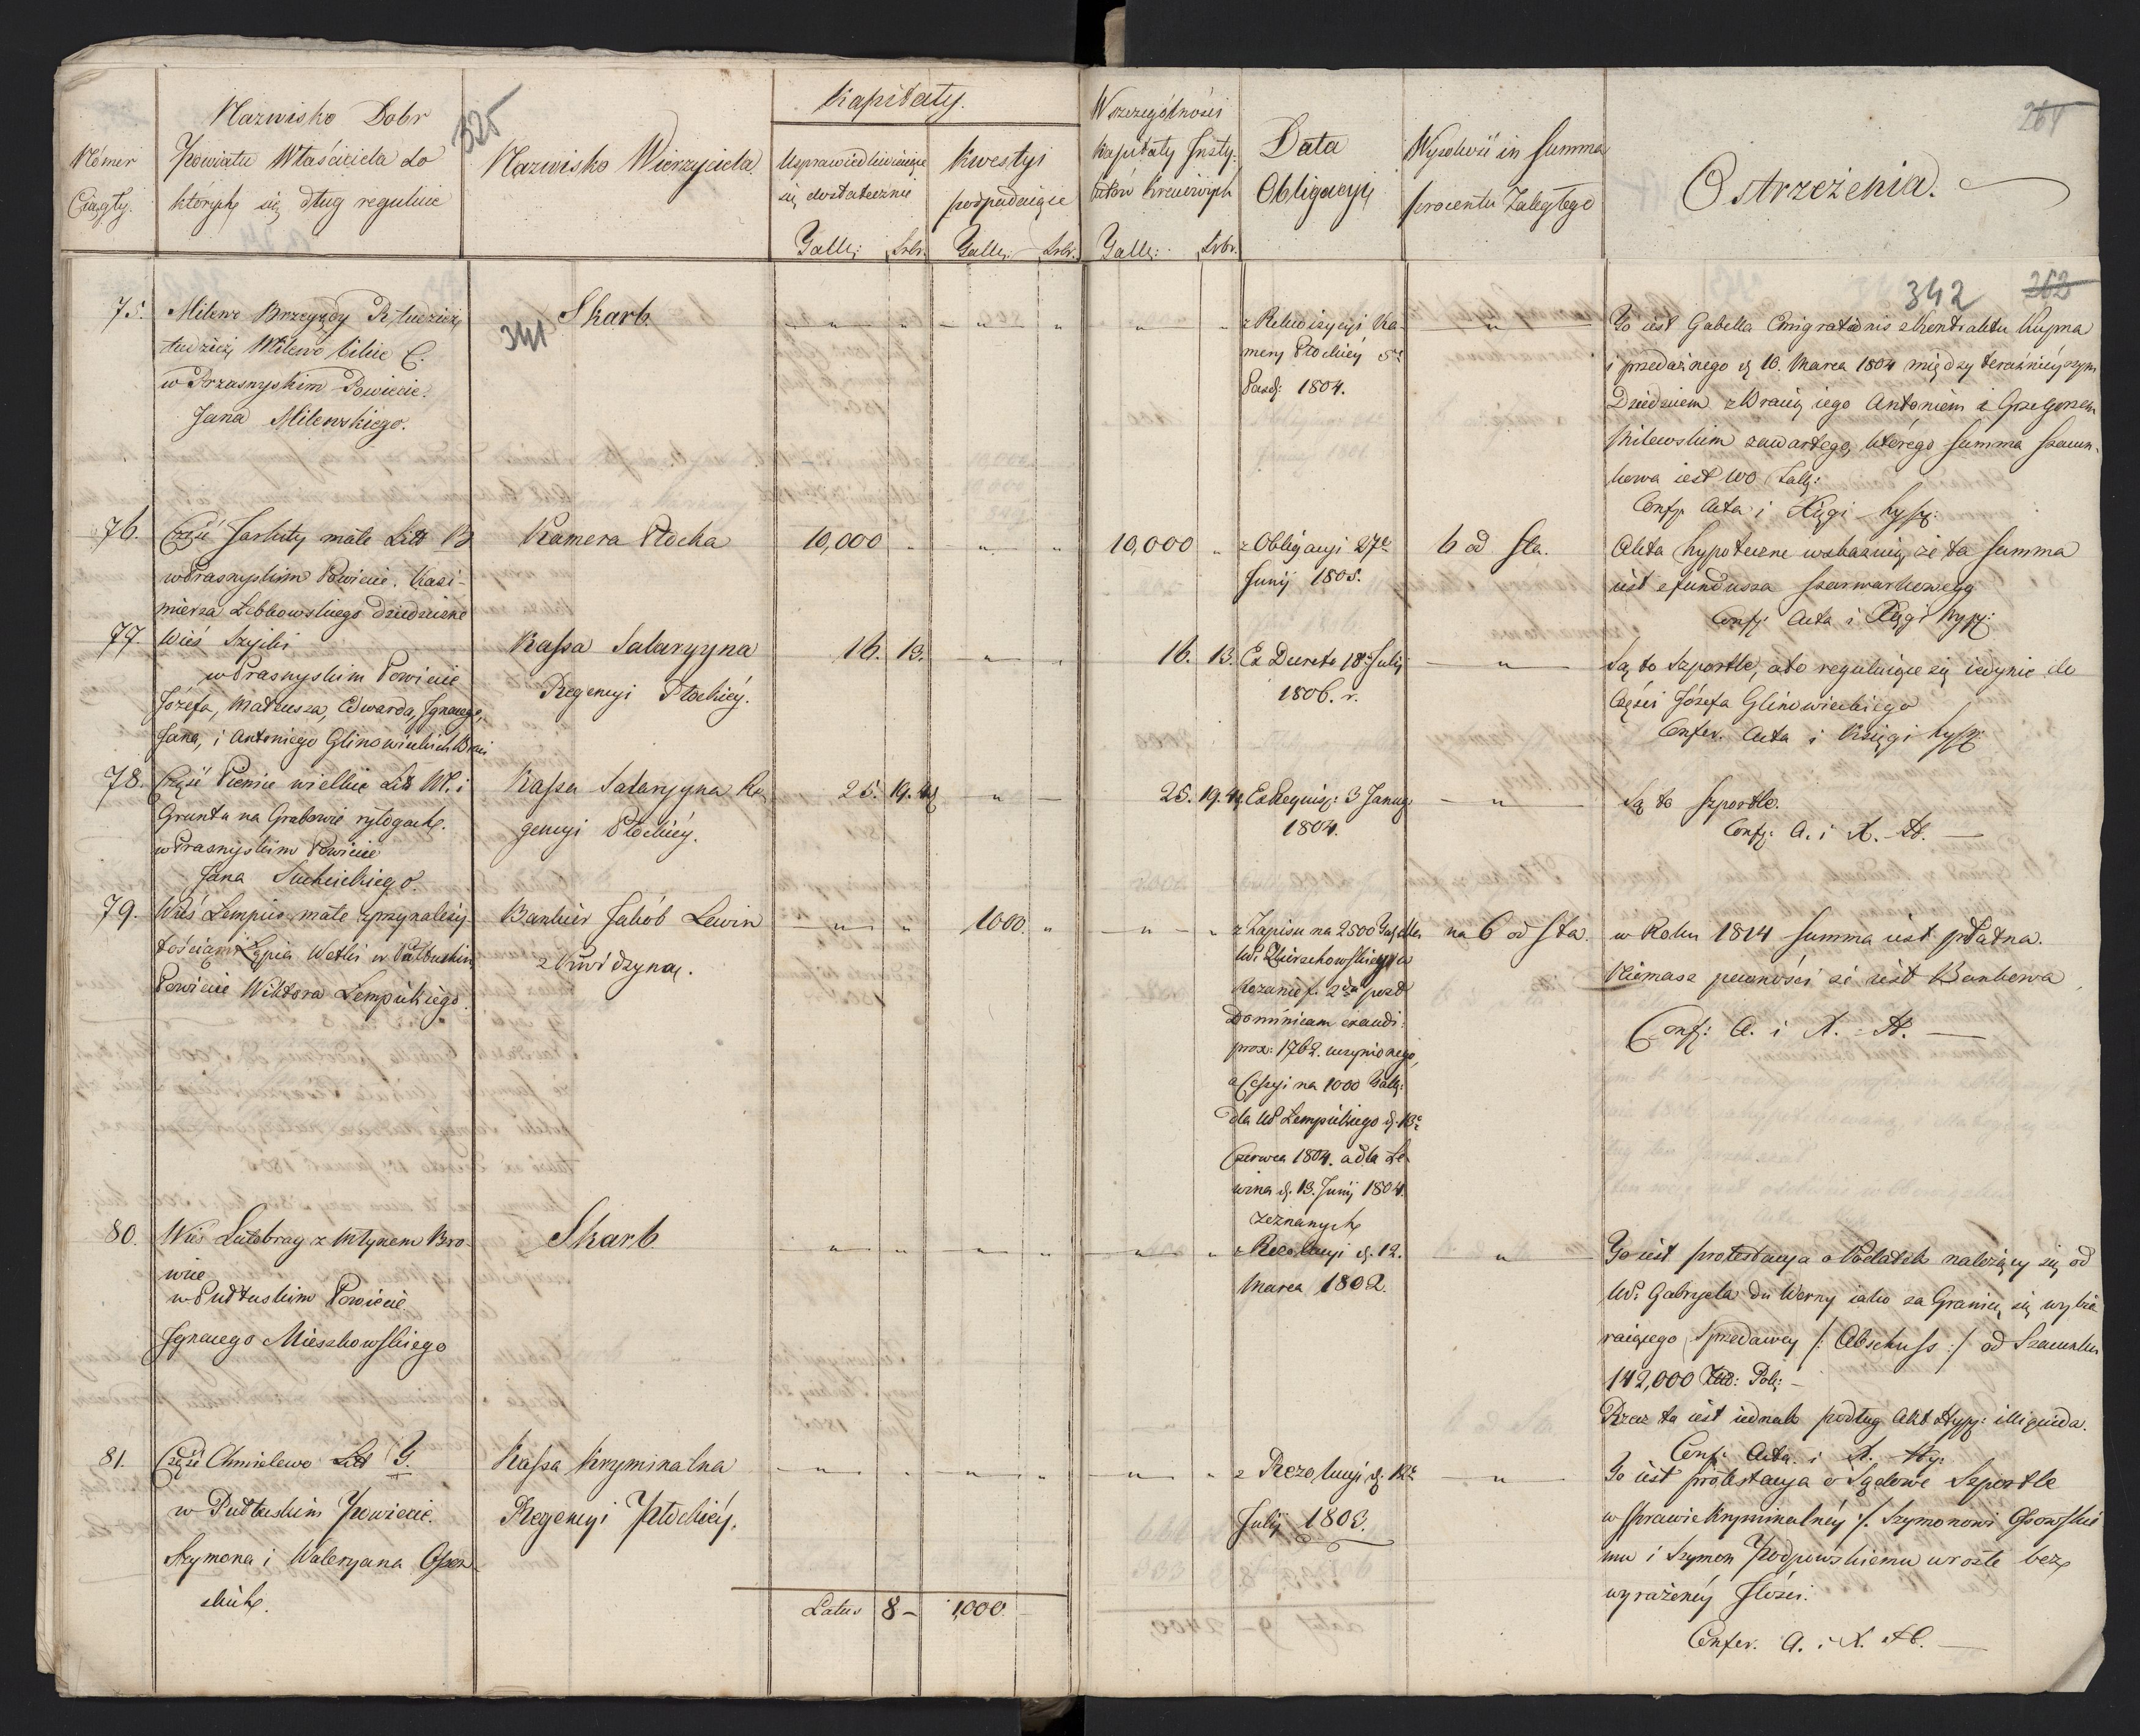 325
264
Numer
Ciągły.
Nazwisko Dobr
Powiatu Właściciela do
których się dług reguluie
Nazwisko Wierzyciela.
Kapitały.
Usprawiedliwiaiące
się dostatecznie
Tall: Srbr.
Kwestyi
podpadaiące
Tall: Srbr.
W szczególności
Kapitały Insty-
tutów Kraiowych
Tall: Srbr.
Data
Obligacyi
Wysokość in Summa
procentu Zaległego
Ostrzeżenia.
341
342
262
75.
Milewo Brzegędy
tudzież Milewo
w Przasnyskim Powiecie.
Jana Milewskiego.
Skarb.
z Rekwizycyi Ka-
mery Płockiey 5
1804.
To iest Gabella Emigrationis z Kontraktu Kupna
i przedażnego d. 16. Marca 1804 między teraźnieyszym
Dziedzicem z Bracią iego Antoniem i Grzegorzem
Milewskim zawartego, którego Summa szacun-
kowa iest 100 Tall:
Conf. Acta i Xięgi hyp:
76.
Część Jarluty małe Litt B
w Prasnyskim Powiecie. Kazi-
mierza Lebkowskiego dziedziczne
Kamera Płocka
10,000
10,000
z Obligacyi 27
Junij 1805.
6 od sta.
Akta hypoteczne wskazuią, że ta summa
iest z funduszu szarwarkowego
Conf: Acta i Xięgi hyp:
77.
Wieś Szyiki
w Prasnyskim Powiecie
Józefa, Mateusza, Edwarda, Ignacego,
Jana, i Antoniego Glinowieckich Braci
Kassa Salaryyna
Regencyi Płockiey.
16. 13.
16. 13.
Ex Decreto 18 Julij
1806. r.
Są to Szportle, a to reguluiące się iedynie do
Części Józefa Glinowieckiego
Confer. Acta i Księgi hyp:
78.
Część Pienice wielkie Litt M. i
Gruntu na Grabowie rylogach.
w Prasnyskim Powiecie
Jana Suchcickiego.
Kassa Salaryyna Re-
gencyi Płockiey.
25. 19. 4
25. 19. 4
Ex Requis: 3 Januar:
1804.
Są to szportle.
Conf: A. i X. H.
79.
Wieś Lempice małe z przynależy-
tościami w Pułtuskim
Powiecie Wiktora Lempickiego
Bankier Jakób Lewin
z Kwidzyna.
1000.
z Zapisu na 2500 dla
W. Zbierzchowskiego
2da post
Dominicam exaudi:
prox: 1762. uczynionego,
a Cessyi na 1000 Tall:
dla W Lempickiego d. 13
Czerwca 1804. a dla Le-
wina d. 13. Junij 1804.
zeznanych
na 6 od sta.
w Roku 1814 summa iest płatna.
Niemasz pewności że iest Bankowa
Conf: A. i X. H.
80.
Wieś Lutobrag z Młynem Bro-
wie
w Pułtuskim Powiecie
Ignacego Mieszkowskiego
Skarb
z Rezolucyi d. 12.
Marca 1802.
To iest protestacya o Podatek należący się od
W. Gabryela du Werny iako za Granicę się wybie
raiącego Sprzedawcy /: Abschuss :/ od Szacunku
142,000 Zł: Pol:
Rzecz ta iest iednak podług Akt Hyp: illiquida.
Conf: Acta i X. Hy:
81.
Część Chmielewo Litt G.
w Pułtuskim Powiecie.
Szymona i Waleryana Ossow
skich.
Kassa Kryminalna
Regencyi Płockiey.
z Rezolucyi d. 12
Julij 1803.
To iest protestacya o Sądowe Szportle
w sprawie Kryminalney /: Szymonowi Ossowskie
mu i Szymon urosłe bez
wyrażenéy Ilości.
Confer. A. i X. H.
Latus 8 – 1,000.